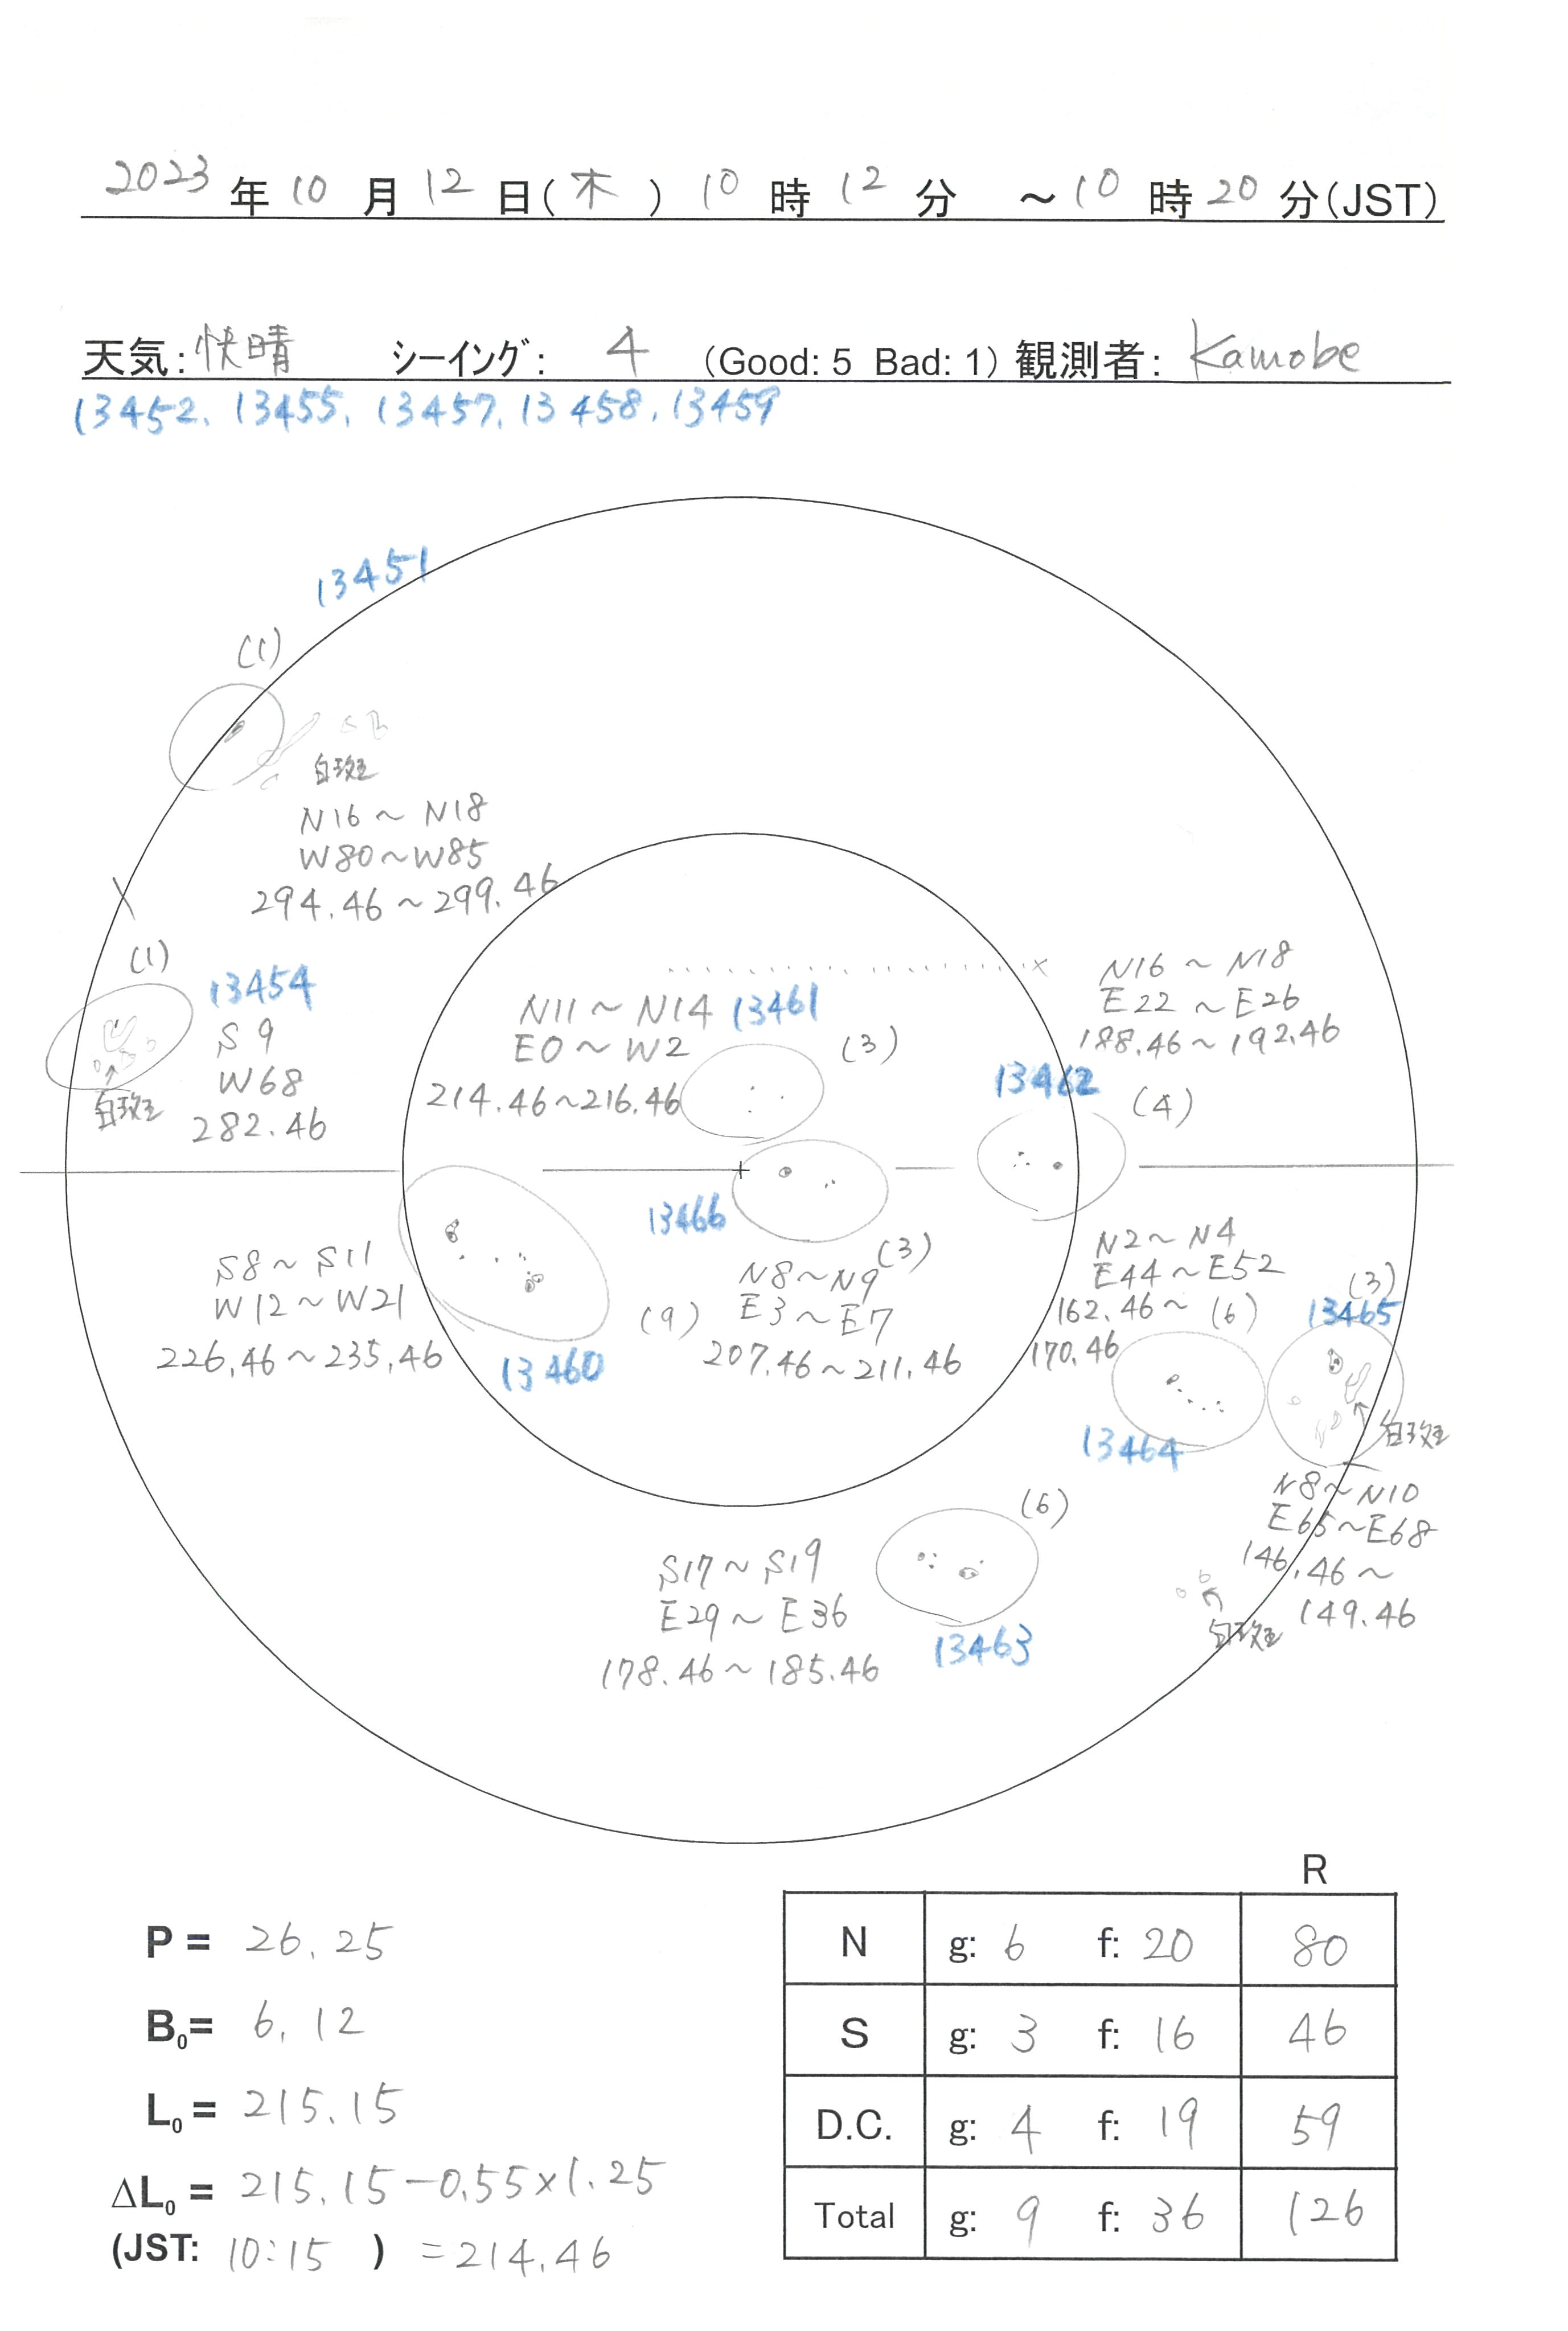 2023年10月12日(木)10時12分 ～10時20分(JST)
天気:快晴 シーイング: 4 (Good: 5 Bad: 1) 観測者: Kamobe
13452, 13455, 13457, 13458, 13459
13451
(1)
白斑
N16～N18
W80～W85
294.46～299.46
(1)
13454
S9
W68
282.46
白斑
N11～N14 13461
E0～W2 (3)
214.46～216.46
N16～N18
E22～E26
188.46～192.46
13462
(4)
13466
S8～S11
W12～W21
226.46～235.46
(9)
13460
(3)
N8～N9
E3～E7
207.46～211.46
N2～N4
E44～E52
162.46～ (6)
170.46
13464
(3)
13465
白斑
N8～N10
E65～E68
146.46～
149.46
白斑
(6)
S17～S19
E29～E36
178.46～185.46
13463
R
P = 26.25
B0= 6.12
L0= 215.15
ΔL0 = 215.15-0.55×1.25
(JST: 10:15 ) =214.46
N g: 6 f: 20 80
S g: 3 f: 16 46
D.C. g: 4 f: 19 59
Total g: 9 f: 36 126